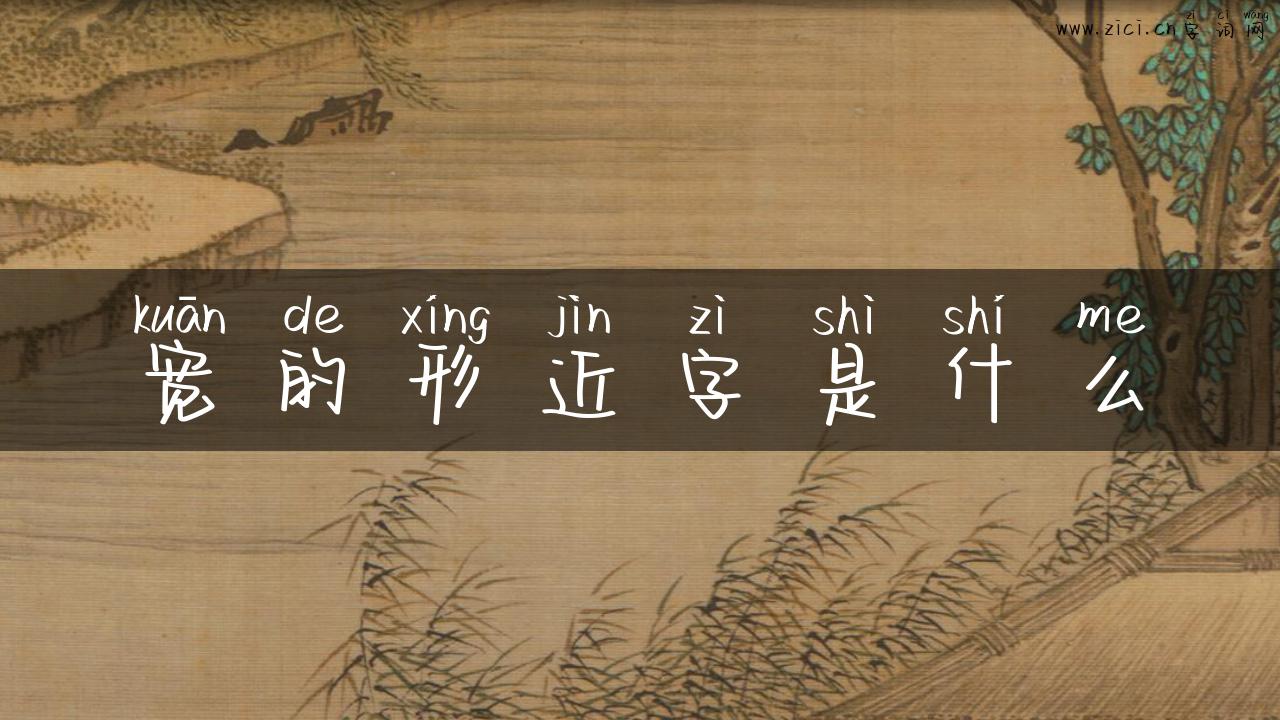 zì cí wǎng
www.zici.cn字词网
kuān de xíng jìn zì shì shí me
宽的形近字是什么